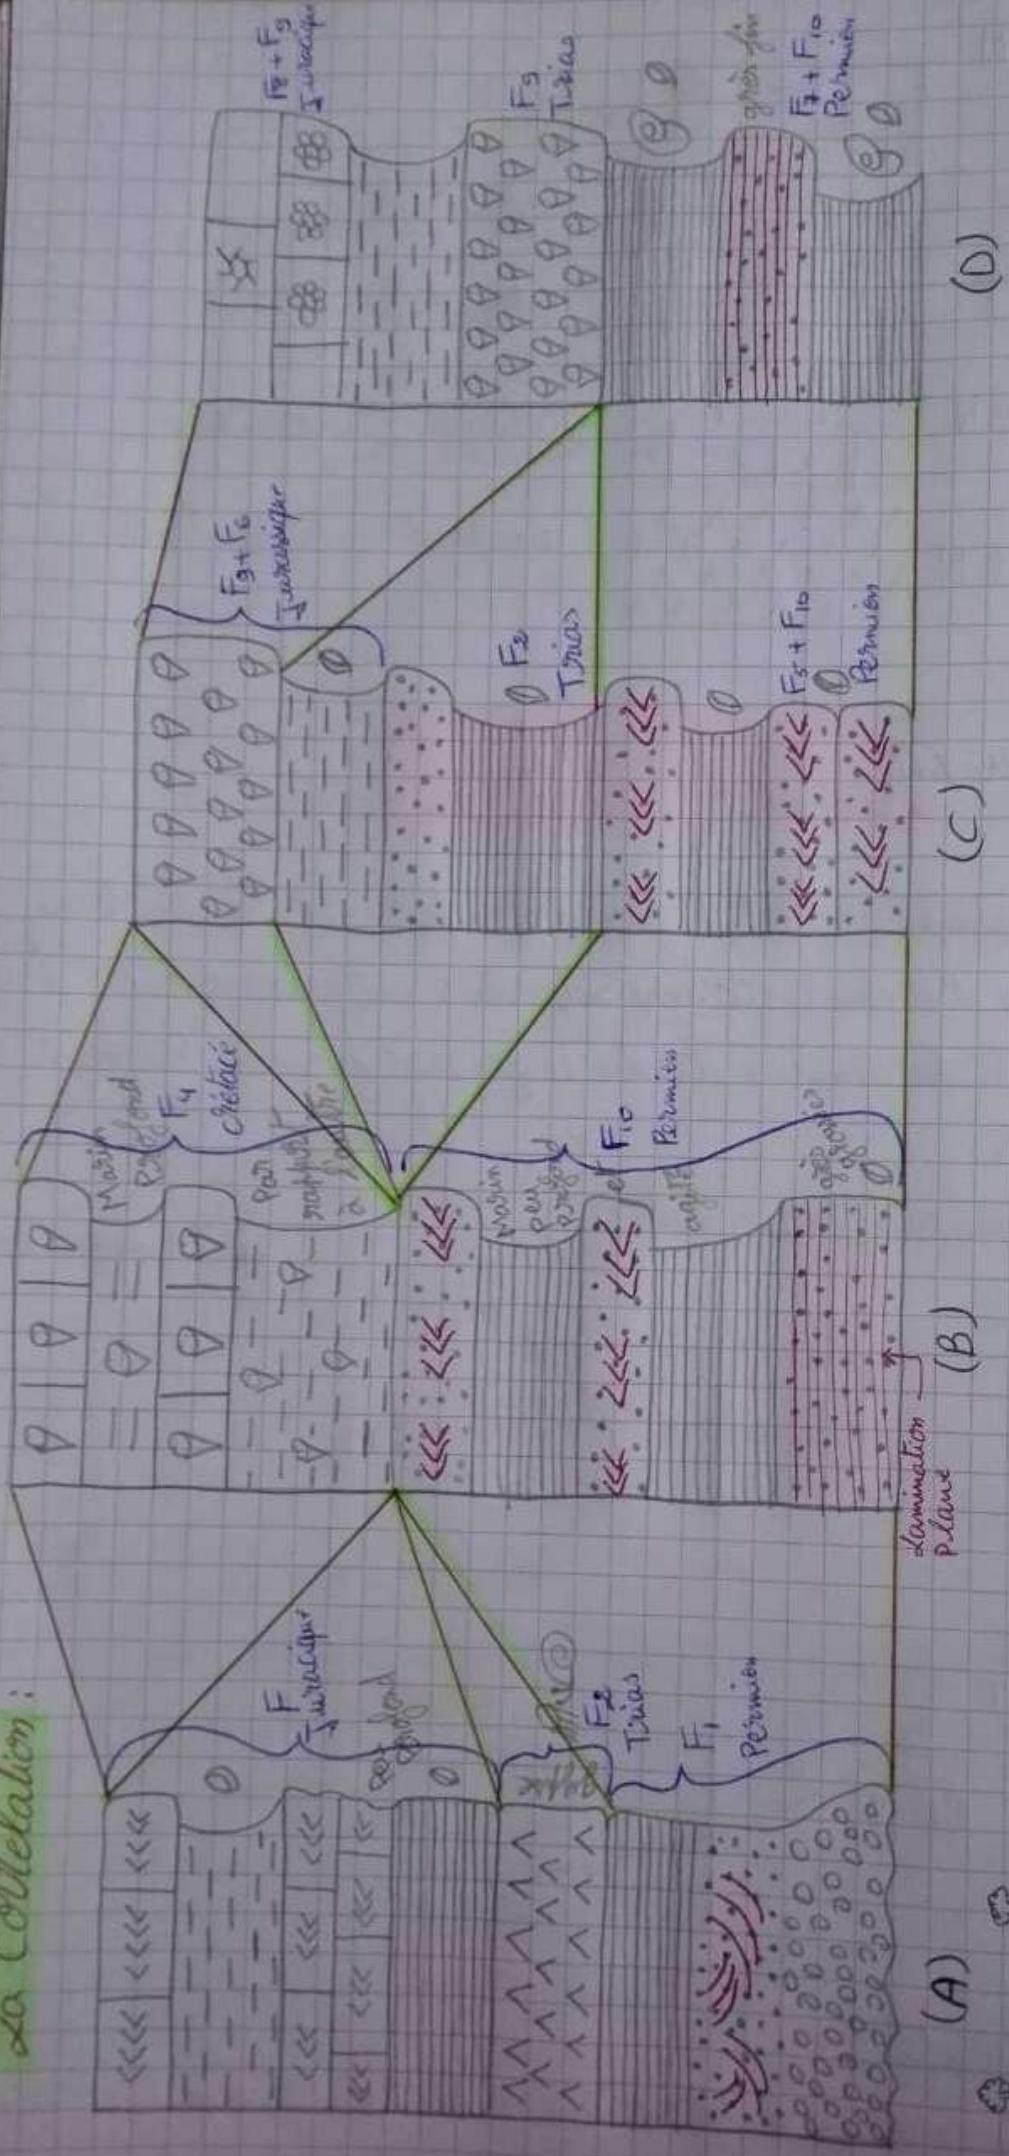 La Corrélation :
F
Juracique
peu
profond
F2
Trias
F1
Permien
(A)
Marin
profond
F4
Crétacé
Par
rapport
à l'autre
Marin
peu
profond
et
agité
F10
Permien
Lamination
plane
(B)
F9 + F6
Jurassique
F2
Trias
F5 + F10
Permien
(C)
F8 + F9
Juracique
F9
Trias
grès fin
F7 + F10
Permien
(D)